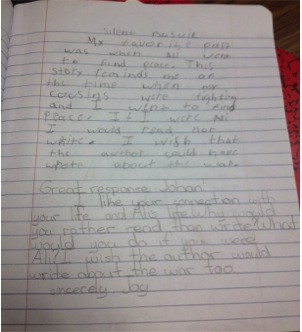 Silent Music
My favorite part
was when Ali went
to find peace. This
story reminds me of
the time when my
cousins were fighting
and I went to find
peace. If I were Ali
I would read not
write. I wish that
the author could have
wrote about the war.
Great response Johan!
I like your connection with
your life and Ali's life. Why would
you rather read than write? What
would you do if you were
Ali? I wish the author would
write about the war too.
sincerely Joy